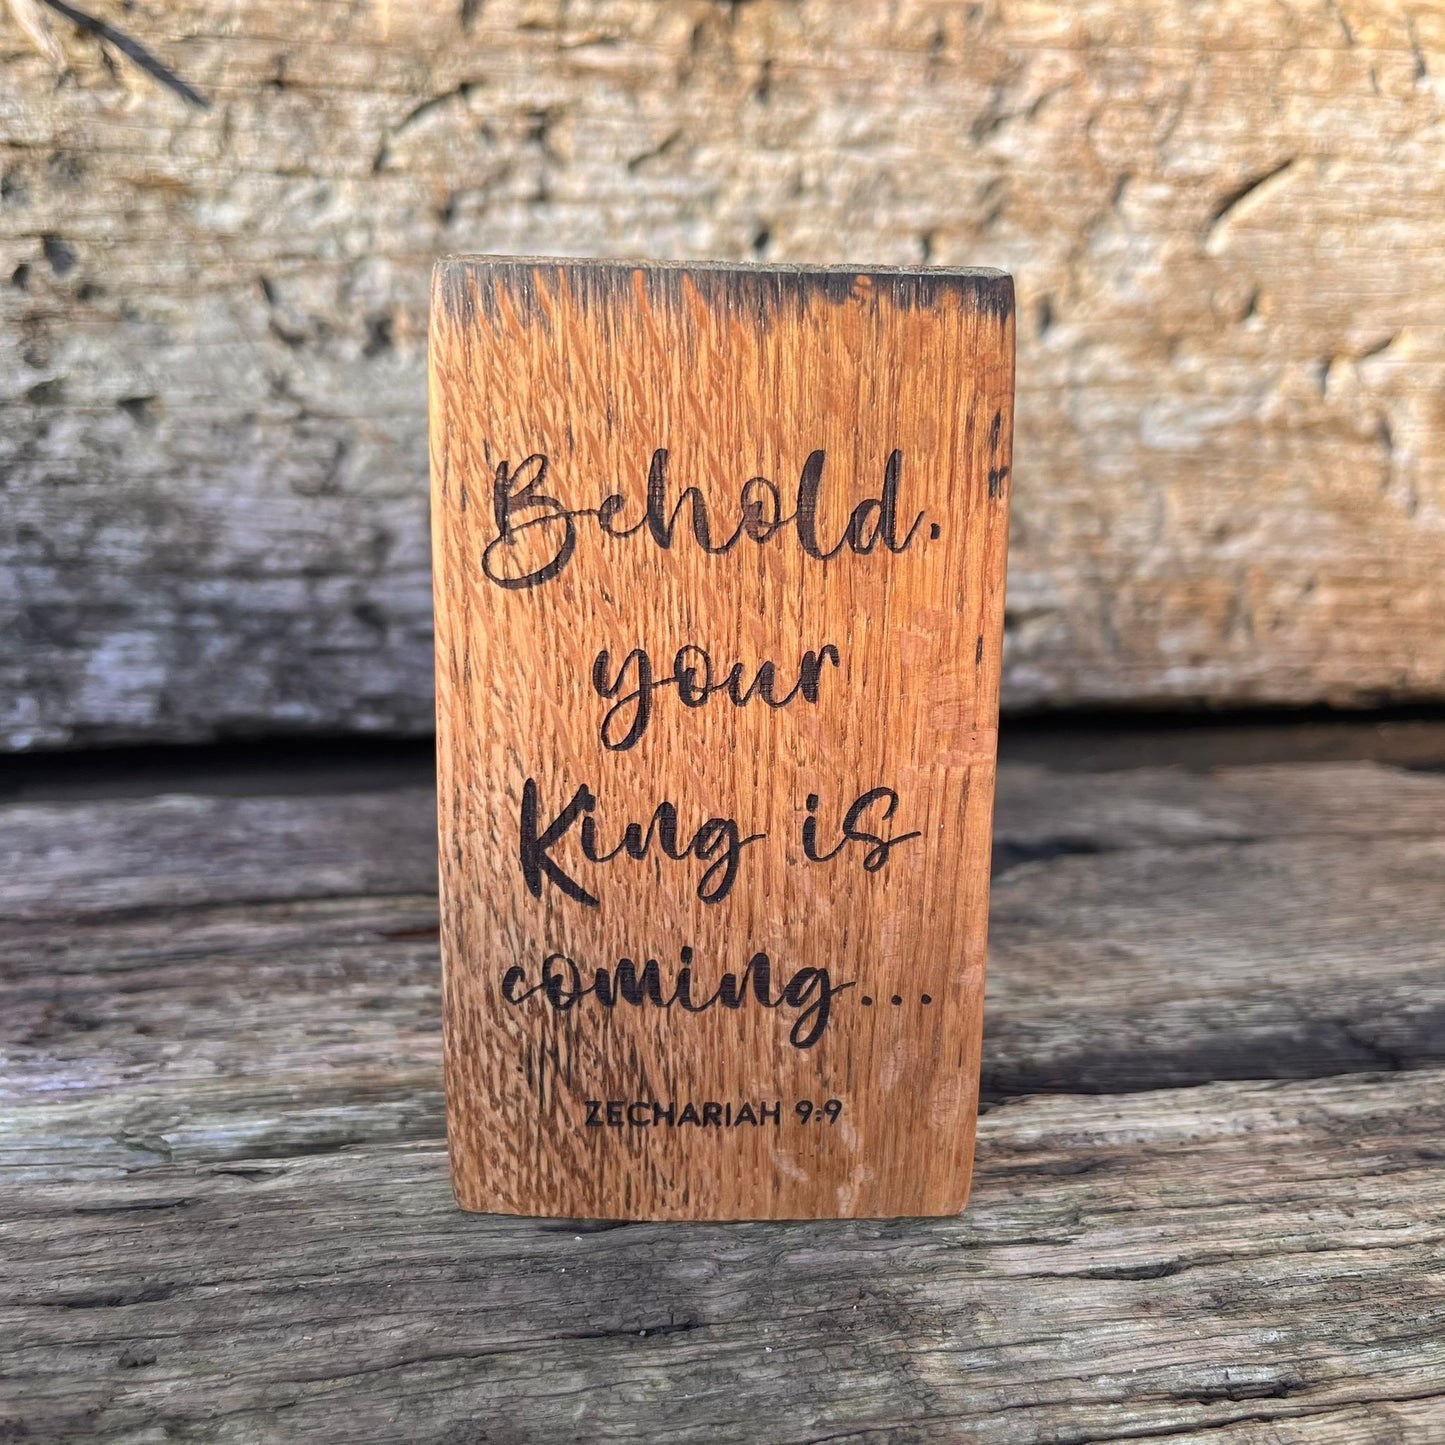 Behold,
your
King is
coming...
ZECHARIAH 9:9